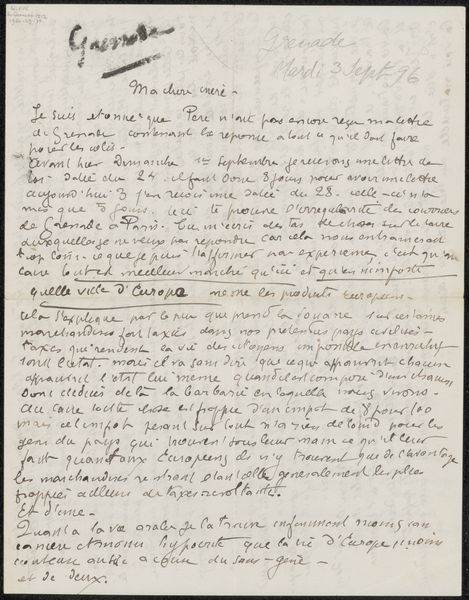 Grenade
Grenade
Mardi 3 Sept 96
Ma chère mère -
Je suis étonné que Père n'ait pas encore reçu ma lettre
de Grenade contenant la réponse à tout ce qu'il doit faire
pour les colis.
Avant hier Dimanche 1er Septembre je recevais une lettre de
toi datée du 24. il faut donc 8 jours pour avoir une lettre
aujourd'hui 3 j'en reçois une datée du 28. celle-ci n'a
mis que 5 jours. ceci te prouve l'irrégularité des courriers
de Grenade à Paris. Tu m'écris des tas de choses sur le Caire
auxquelles je ne veux pas répondre car cela nous entrainerait
trop loin. ce que je puis t'affirmer par expérience, c'est qu'au
Caire tout est meilleur marché qu'ici et qu'en n'importe
quelle ville d'Europe même les produits Européens -
cela s'explique par le peu que prend la douane sur certaines
marchandises qui sont taxés dans nos prétendus pays civilisés -
taxes qui rendent la vie des citoyens impossible
tout l'état. mais il va sans dire que ce qui appauvrit chacun
appauvrit l'état lui même quand il est composé d'un chacun
Donc déduis de là la barbarie en laquelle nous vivons.
Au Caire toute chose est frappée d'un impôt de 8 pour 100
mais cet impôt pesant sur tout n'a rien de lourd pour les
gens du pays qui trouvent sous leur main ce qu'il leur
faut quant aux Européens ils n'y trouvent que de l'avantage
les marchandises rentrant étant celles généralement les plus
frappées ailleurs de taxes révoltantes.
Et d'une -
Quant à la vie arabe je la trouve infiniment moins
et moins hypocrite que la vie d'Europe
à cause du sans-gêne -
et de deux.